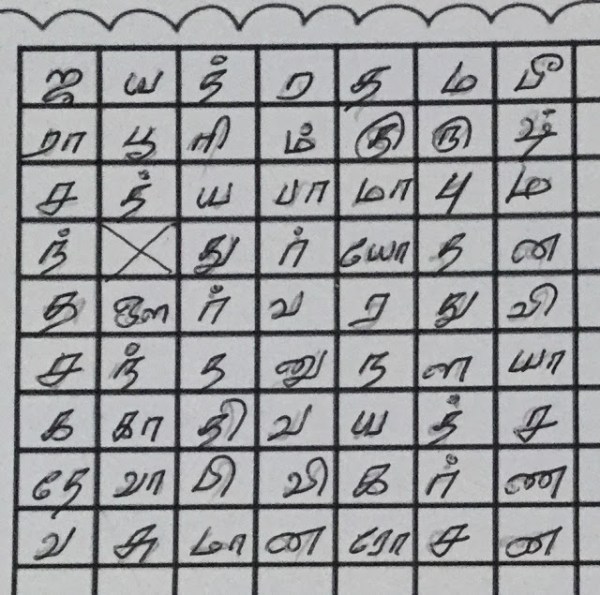 ஜ ய த் ர த ம பீ
ரா பூ ரி ம் தி நி ஷ்
ச த் ய பா மா பு ம
ந் து ர் யோ த ன
த ஔ ர் வ ர து வி
ச ந் த னு ந ள யா
க கா தி வ ய த் ச
தே வா பி வி க ர் ண
வ சு மா ன ரோ ச ன